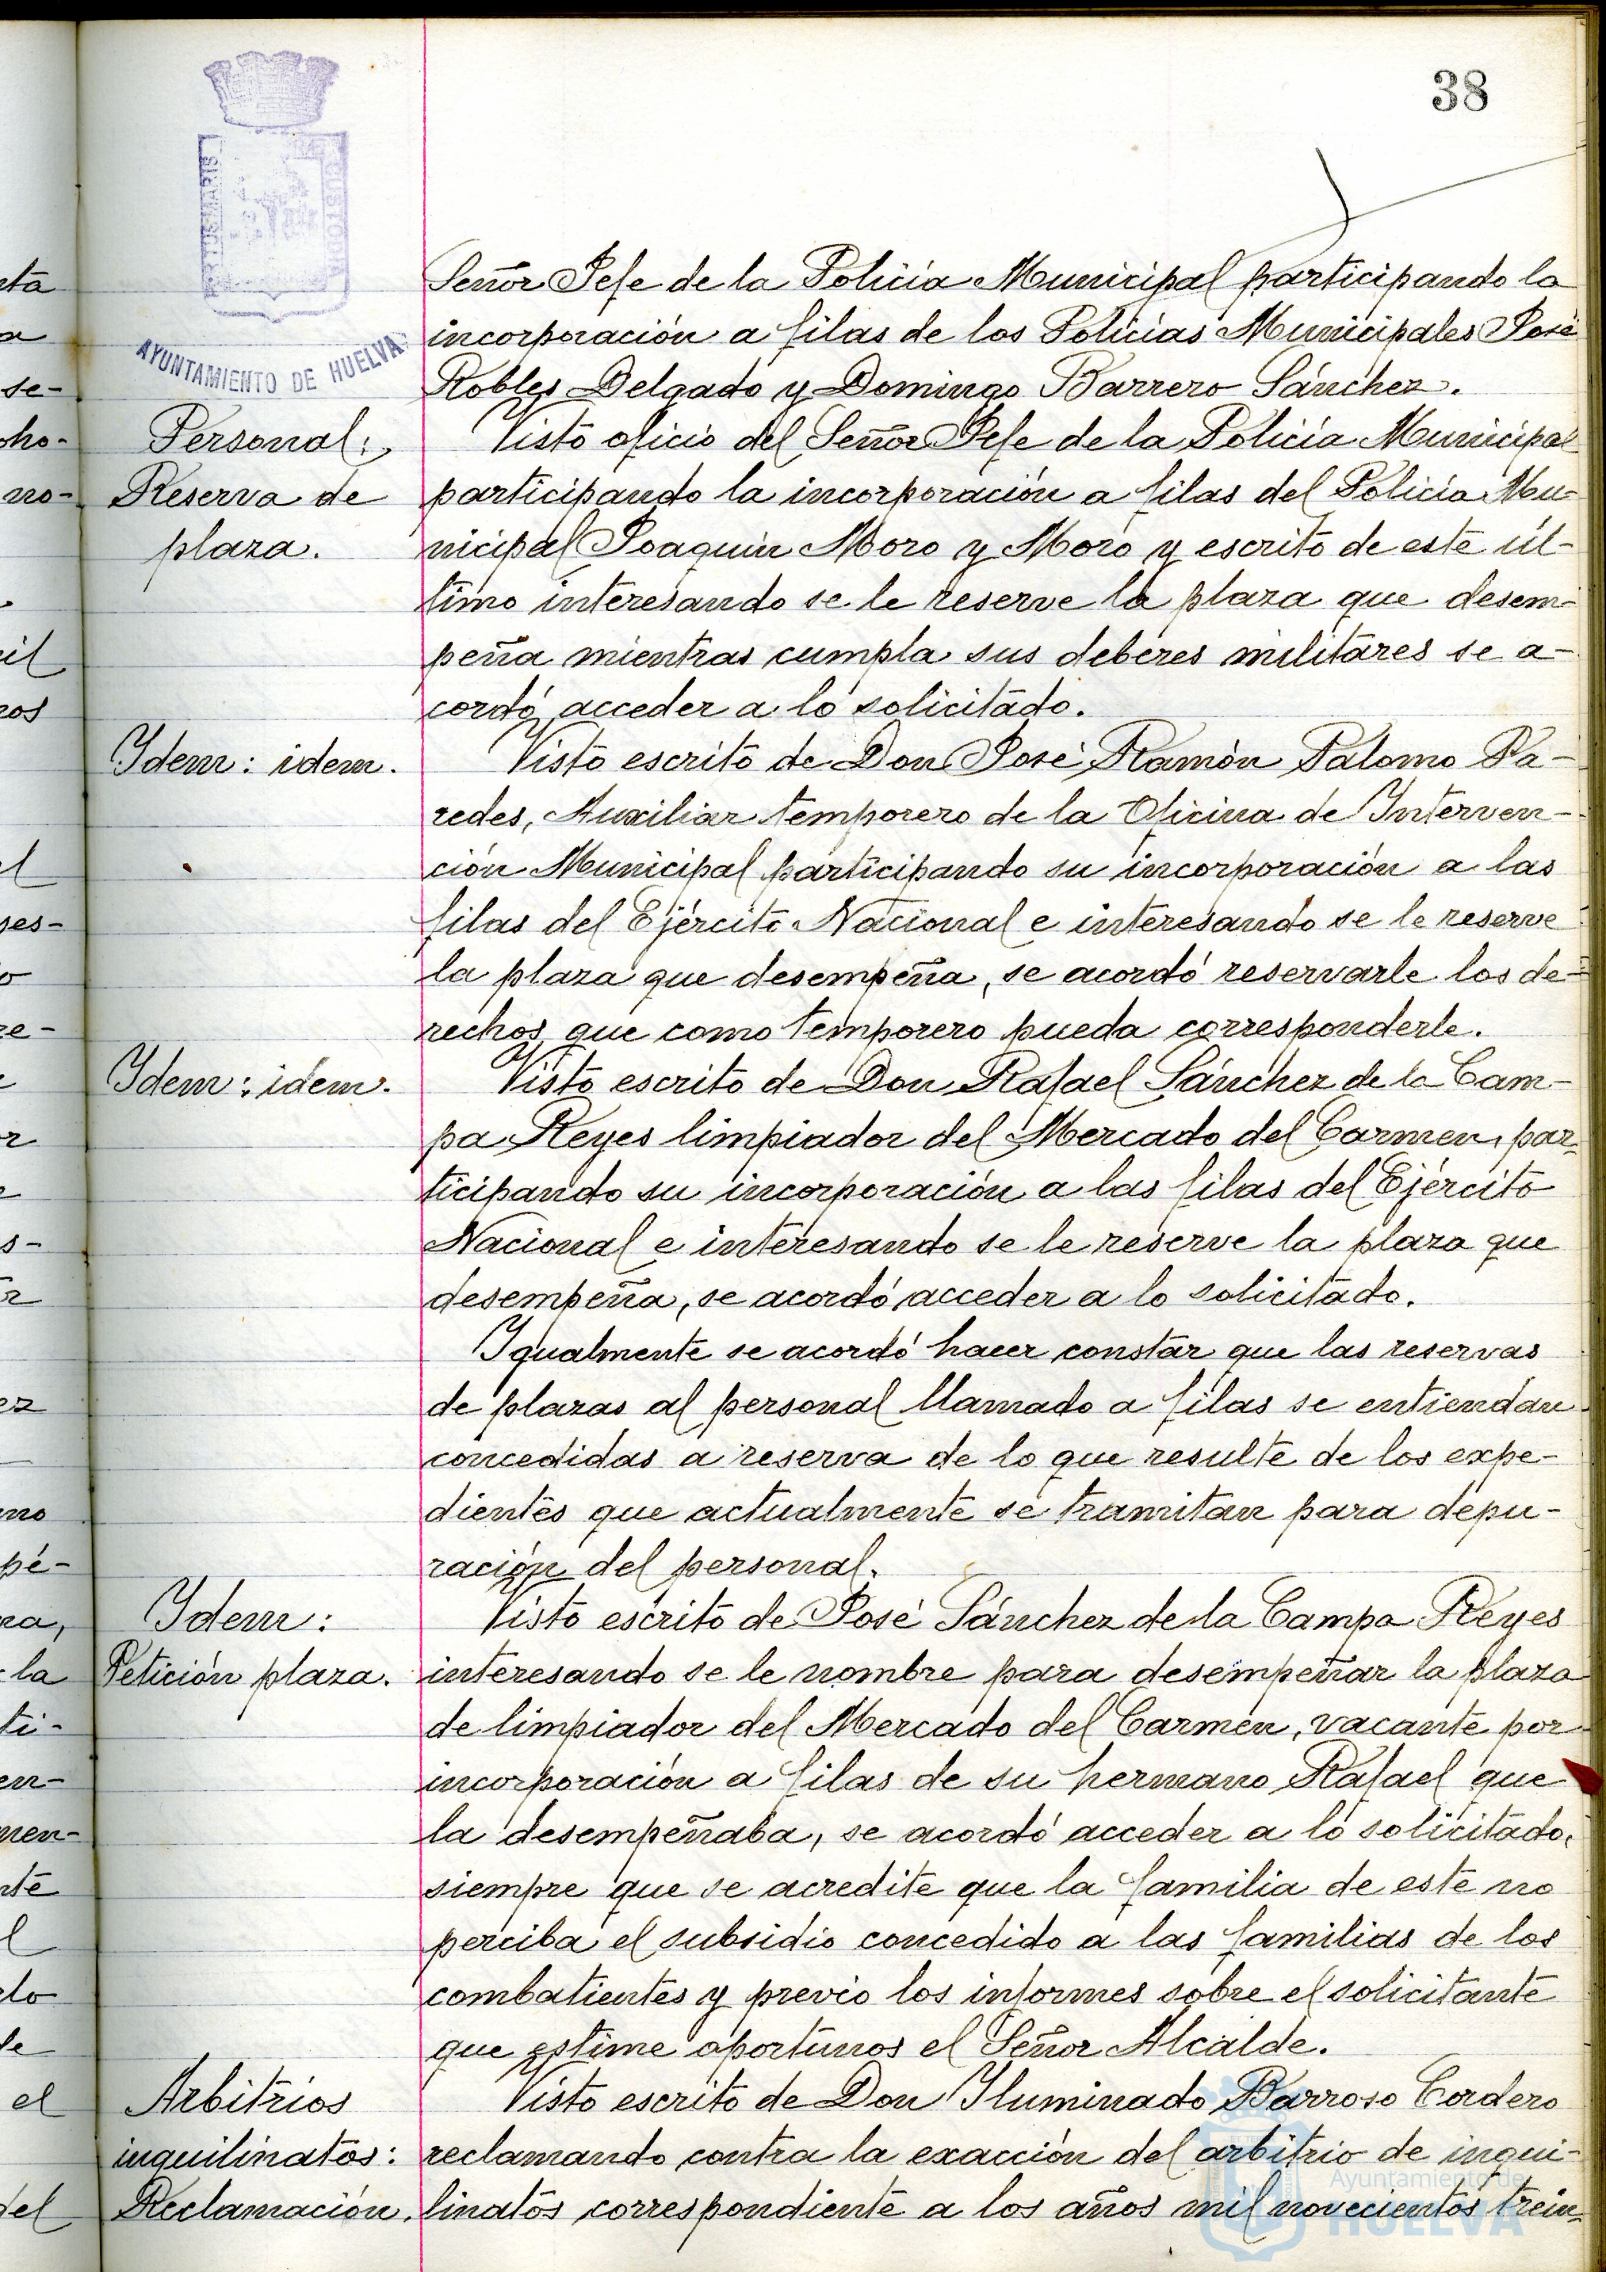 38
AYUNTAMIENTO DE HUELVA
Señor Jefe de la Policía Municipal participando la
incorporación a filas de los Policías Municipales José
Robles Delgado y Domingo Barrero Sánchez.
Personal:
Reserva de
plaza.
Visto oficio del Señor Jefe de la Policía Municipal
participando la incorporación a filas del Policía Mu-
nicipal Joaquín Moro y Moro y escrito de este úl-
timo interesando se le reserve la plaza que desem-
peña mientras cumpla sus deberes militares se a-
cordó acceder a lo solicitado.
Idem: idem.
Visto escrito de Don José Ramón Palomo Pa-
redes, Auxiliar temporero de la Oficina de Interven-
ción Municipal participando su incorporación a las
filas del Ejército Nacional e interesando se le reserve
la plaza que desempeña, se acordó reservarle los de-
rechos que como temporero pueda corresponderle.
Idem: idem.
Visto escrito de Don Rafael Sánchez de la Cam-
pa Reyes limpiador del Mercado del Carmen, par-
ticipando su incorporación a las filas del Ejército
Nacional e interesando se le reserve la plaza que
desempeña, se acordó acceder a lo solicitado.
Igualmente se acordó hacer constar que las reservas
de plazas al personal llamado a filas se entiendan
concedidas a reserva de lo que resulte de los expe-
dientes que actualmente se tramitan para depu-
ración del personal.
Idem:
Petición plaza.
Visto escrito de José Sánchez de la Campa Reyes
interesando se le nombre para desempeñar la plaza
de limpiador del Mercado del Carmen, vacante por
incorporación a filas de su hermano Rafael que
la desempeñaba, se acordó acceder a lo solicitado,
siempre que se acredite que la familia de este no
perciba el subsidio concedido a las familias de los
combatientes y previo los informes sobre el solicitante
que estime oportunos el Señor Alcalde.
Arbitrios
inquilinatos:
Reclamación.
Visto escrito de Don Iluminado Barroso Cordero
reclamando contra la exacción del arbitrio de inqui-
linatos correspondiente a los años mil novecientos trein-
Ayuntamiento de
HUELVA